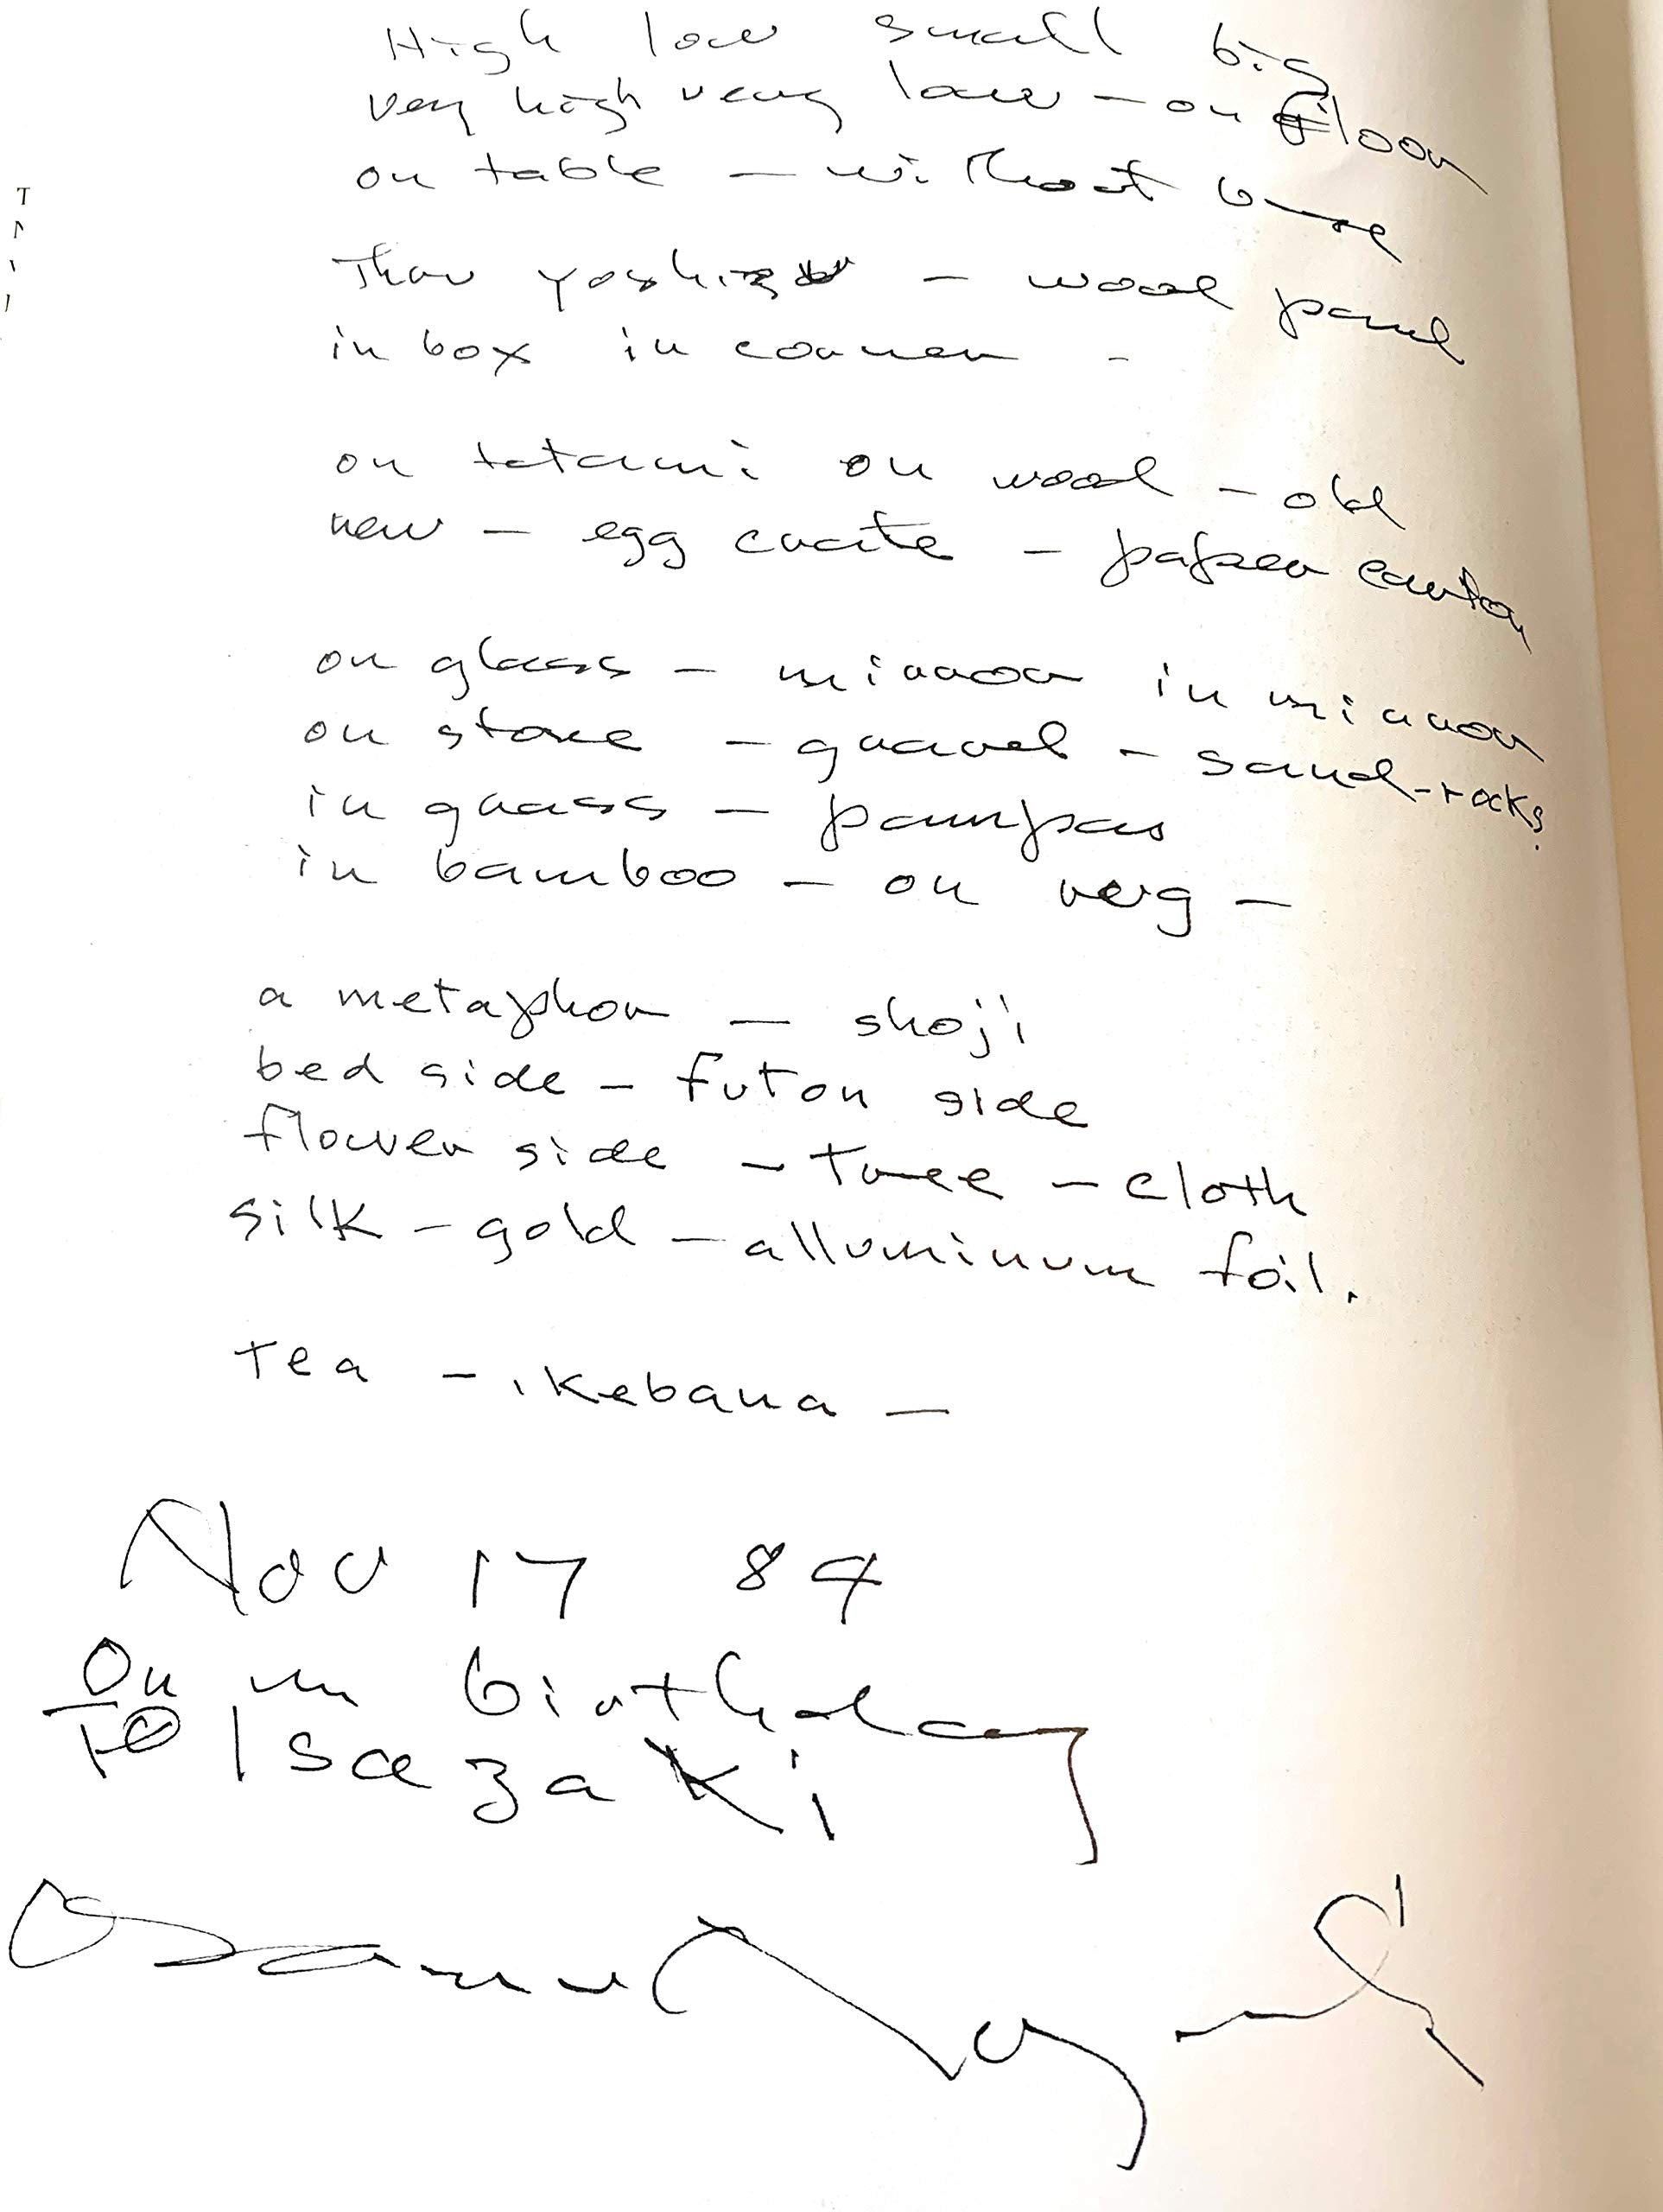 High low small big
very high very low – on floor
on table – without base
Thru yoshizu – wood panel
in box in corner –
on tatami on wood – old
new – egg crate – paper carton
on glass – mirror in mirror
on stone – gravel – sand-rocks
in grass – pampas
in bamboo – on
a metaphor – shoji
bed side – futon side
flower side – tree – cloth
silk – gold – alluminum foil.
Tea – ikebana –
Nov 17 84
On m birthday
TO Isazaki
Isamu Noguchi